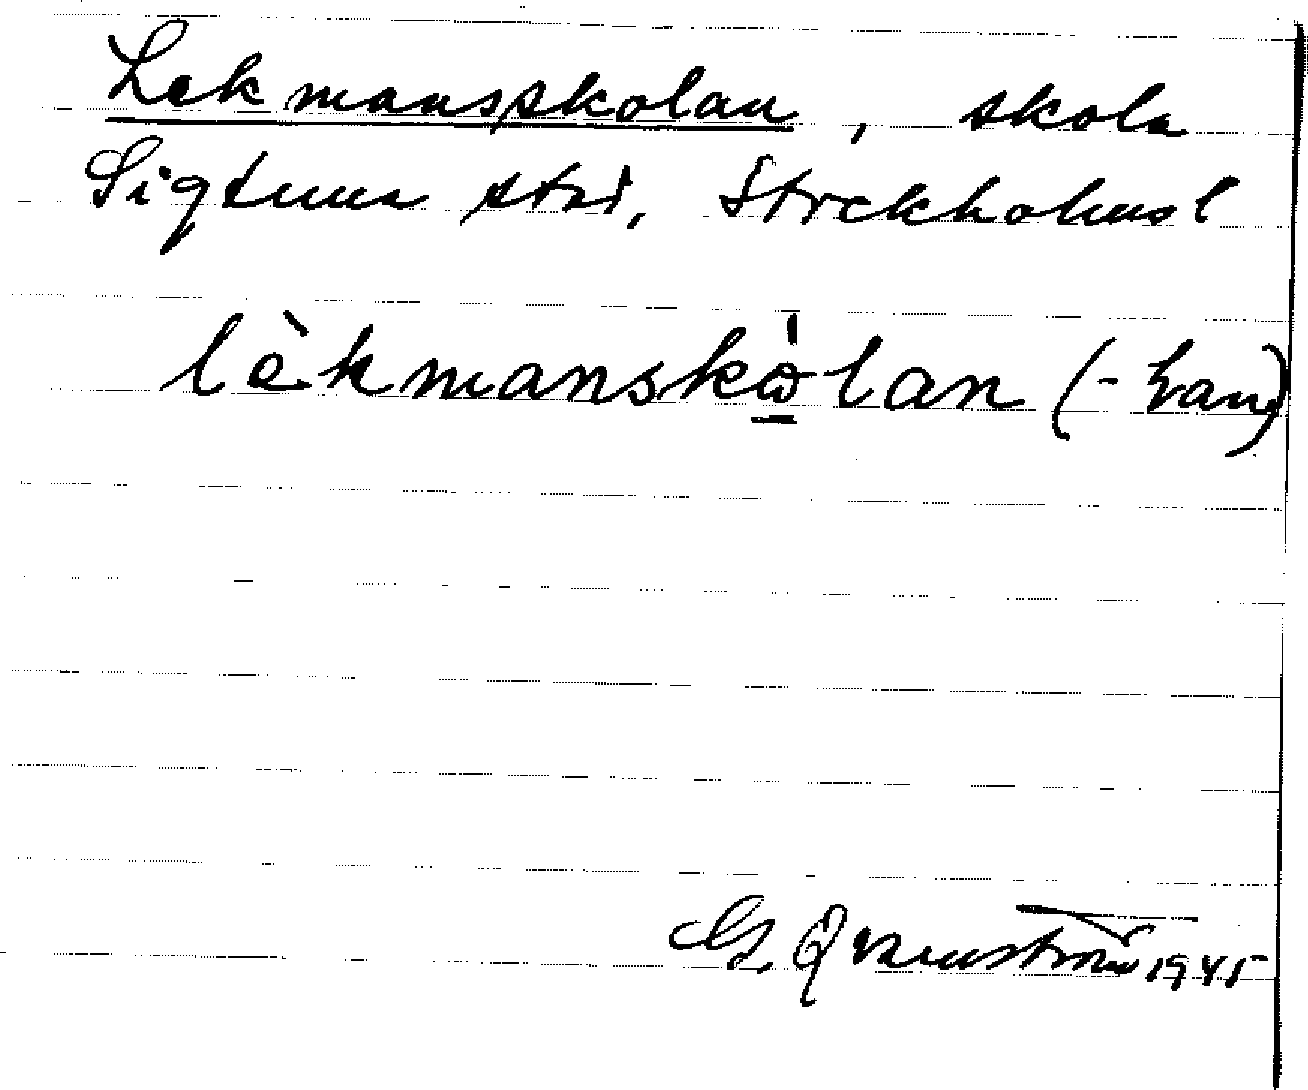 Lekmansskolan, skola
Sigtuna stad, Stockholmsl
lèkmanskò̱lan (-
G. Qvarnström 1945